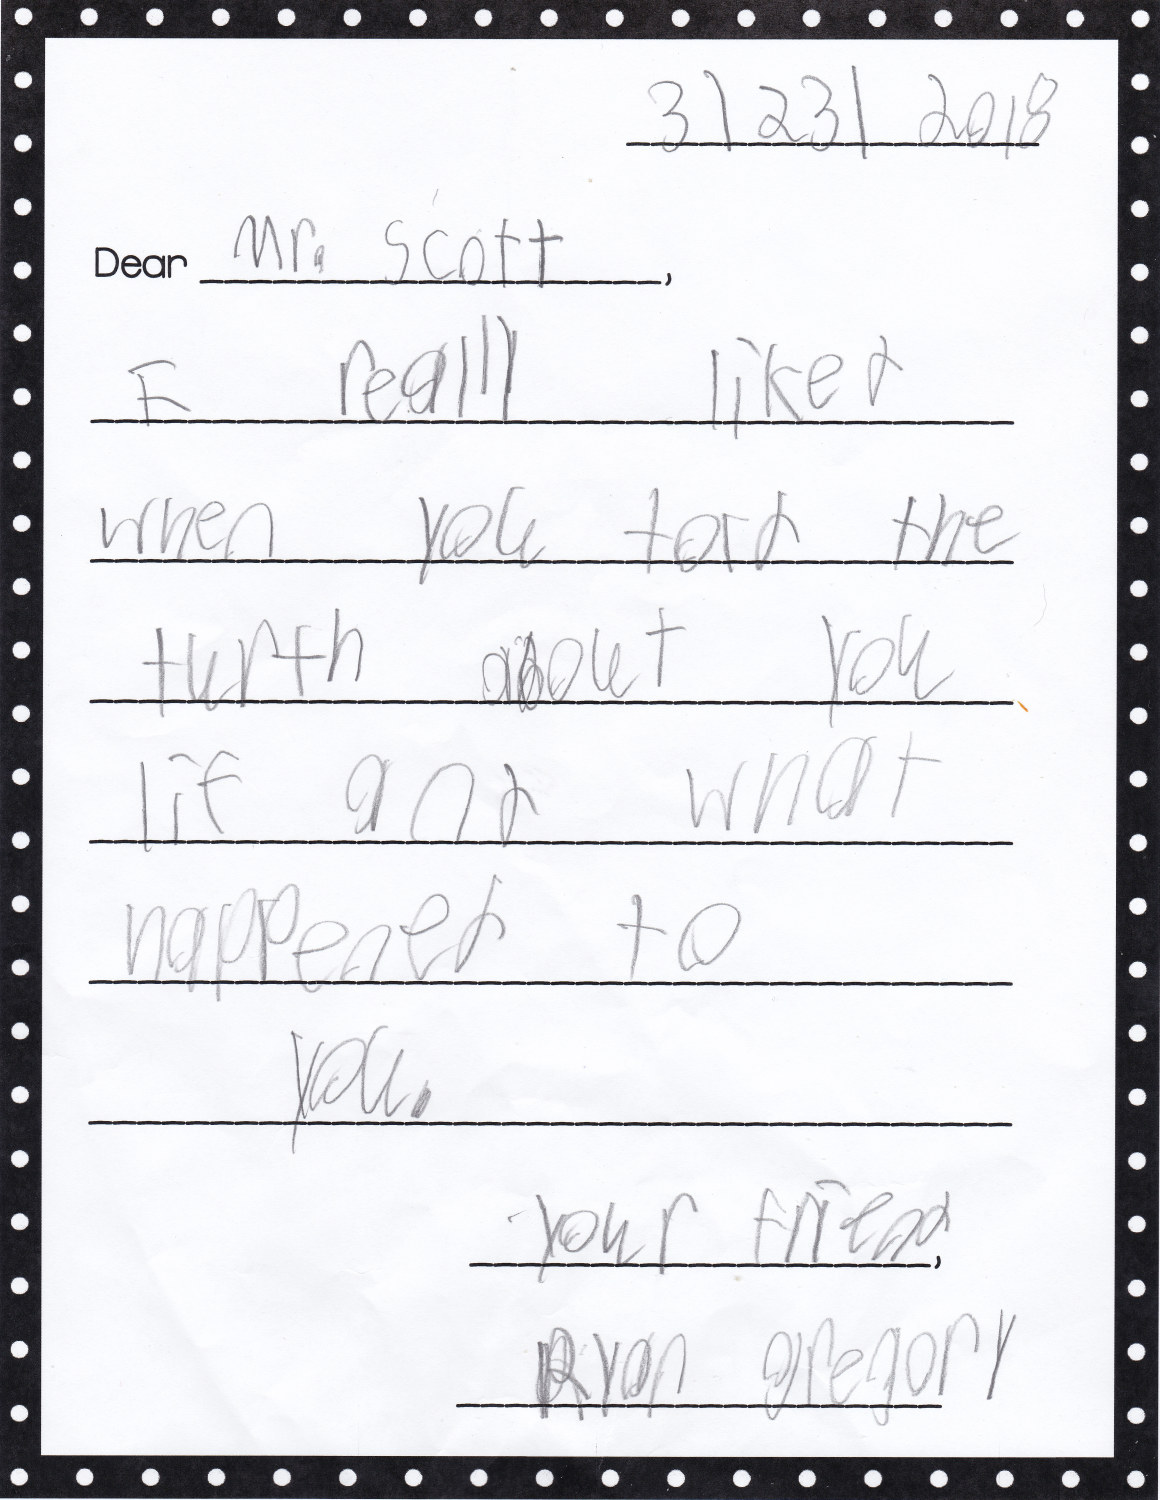 3/23/2018
Dear Mr. Scott,
I really liked
when you tord the
turth about you
lif and what
happened to
you.
your friend,
Ryan gregory